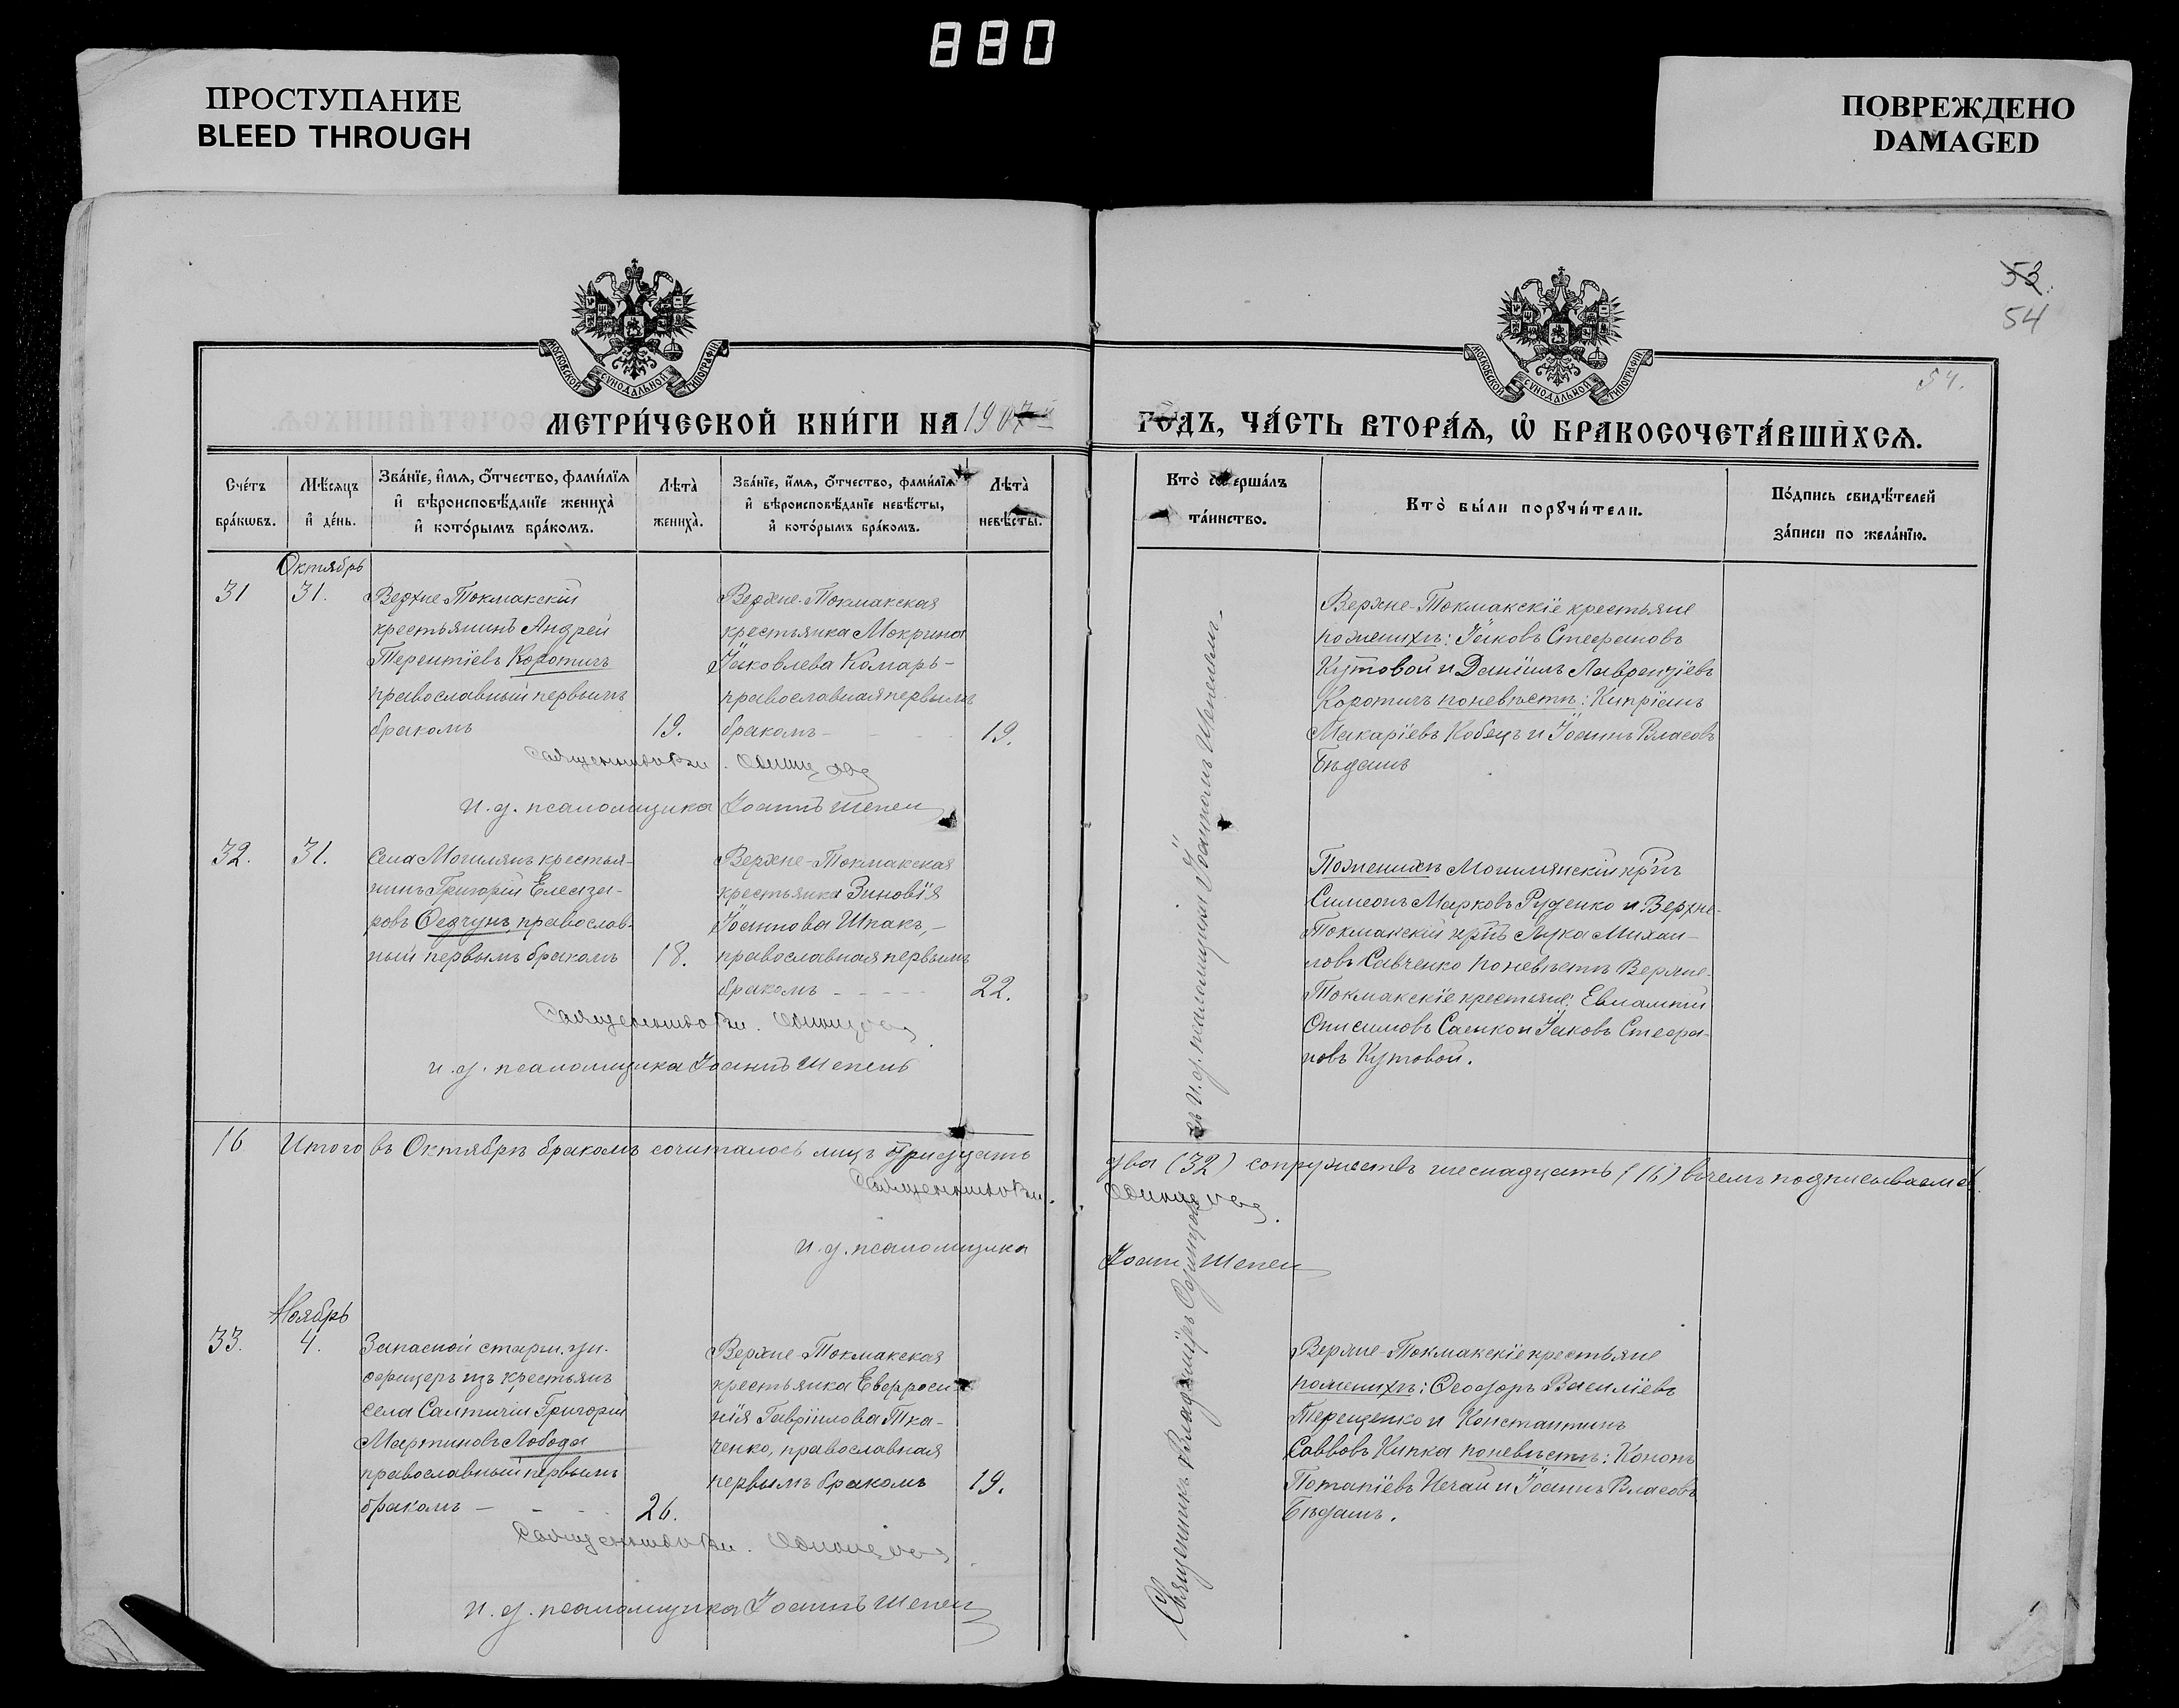 880
ПРОСТУПАНИЕ
BLEED THROUGH
ПОВРЕЖДЕНО
DAMAGED
53
54
54.
МОСКОВСКОЙ СѴНОДАЛЬНОЙ ТИПОГРАФІИ
МОСКОВСКОЙ СѴНОДАЛЬНОЙ ТИПОГРАФІИ
МЕТРИ́ЧЕСКОЙ КНИ́ГИ НА 1907
ГОДЪ, ЧА́СТЬ ВТОРА́Ѧ, Ѡ҆ БРАКОСОЧЕТА́ВШИХСѦ.
Сче́тъ бра́кωвъ.
Мѣ́сѧцъ и҆ де́нь.
Зва́нїе, и҆́мѧ, о҆́тчество, фами́лїѧ и҆ вѣроисповѣ́данїе жениха̀ и҆ кото́рымъ бра́комъ.
Лѣта̀ жениха̀.
Зва́нїе, и҆́мѧ, о҆́тчество, фами́лїѧ и҆ вѣроисповѣ́данїе невѣ́сты, и҆ кото́рымъ бра́комъ.
Лѣта̀ невѣ́сты.
Кто̀ соверша́лъ та́инство.
Кто̀ бы́ли порꙋчи́тели.
По́дпись свидѣ́телей за́писи по жела́нїю.
Октябрь
31
31.
Верхне-Токмакскій
крестьянинъ Андрей
Терентіевъ Коротичъ
православный первымъ
бракомъ
19.
Верхне-Токмакская
крестьянка Мокрина
Іаковлева Комарь-
православная первымъ
бракомъ
19.
Верхне-Токмакскіе крестьяне
по женихѣ: Іаковъ Стефановъ
Кутовой и Даніилъ Лаврентіевъ
Коротичъ по невѣстѣ: Кипріанъ
Макаріевъ Кобецъ и Іоаннъ Власовъ
Бѣдашъ
Священникъ Вл. Одинцовъ
и. д. псаломщика Іоаннъ Шепель
32.
31.
Села Могилянъ крестья-
нинъ Григорій Елеаза-
ровъ Федчунъ, православ-
ный первымъ бракомъ
18.
Верхне-Токмакская
крестьянка Зиновія
Іоаннова Шпакъ,-
православная первымъ
бракомъ
22.
По женихѣ Могилянскій кр-нъ
Симеонъ Марковъ Руденко и Верхне-
Токмакскій кр-нъ Лука Михаи-
ловъ Савченко по невѣстѣ Верхне-
Токмакскіе крестьяне: Евлампій
Онисимовъ Саенко и Іаковъ Стефа-
новъ Кутовой.
Священникъ Вл. Одинцовъ
и. д. псаломщика Іоаннъ Шепель
16
Итого въ Октябрѣ бракомъ сочиталось лицъ тридцать
два (32) супружествъ шеснадцать (16) въ чемъ подписываемся
Священникъ Вл. Одинцовъ
и. д. псаломщика Іоанн Шепель
Ноябрь
33.
4.
Запасной старш. ун.
офицеръ изъ крестьянъ
села Салтичіи Григорій
Мартиновъ Лобода
православный первымъ
бракомъ
26.
Верхне-Токмакская
крестьянка Евфроси-
нія Гавріилова Тка-
ченко, православная
первымъ бракомъ
19.
Верхне-Токмакскіе крестьяне
по женихѣ: Феодоръ Василіевъ
Терещенко и Константинъ
Саввовъ Кипка по невѣстѣ: Кононъ
Потапіевъ Нечай и Іоаннъ Власовъ
Бѣдашъ.
Священникъ Вл. Одинцовъ
и. д. псаломщика Іоаннъ Шепель
Священникъ Владиміръ Одинцовъ съ и. д. псаломщика Іоанномъ Шепелемъ